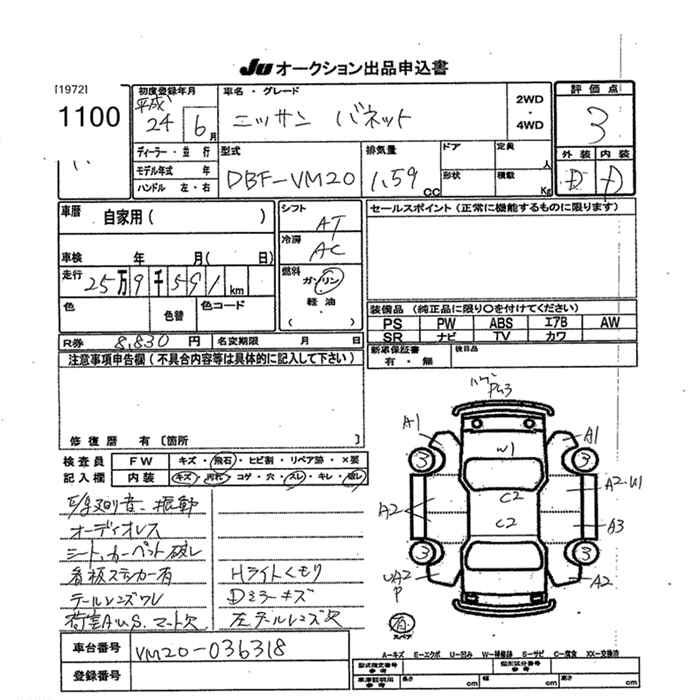 JU オークション出品申込書
[1972]
1100
初度登録年月
平成
24 6月
車名・グレード
ニッサン バネット
2WD
・
4WD
評価点
3
外装 内装
D D
ディーラー・並行
モデル年式 年
ハンドル 左・右
型式
DBF-VM20
排気量
1.59 CC
ドア
形状
定員 人
積載 Kg
車歴 自家用( )
車検 年 月( 日)
走行 25万9千591km
色 色替 色コード
シフト AT
冷房 AC
燃料
ガソリン
軽油
( )
セールスポイント(正常に機能するものに限ります)
装備品(純正品に限り○を付けてください)
PS PW ABS エアB AW
SR ナビ TV カワ
R券 8,830 円 名変期限 月 日
新車保証書
有・無
後日品
注意事項申告欄(不具合内容等は具体的に記入して下さい)
修復歴 有〔箇所
検査員 FW キズ・飛石・ヒビ割・リペア跡・×要
記入欄 内装 キズ・汚れ・コゲ・穴・スレ・キレ・破レ
オーディオレス
シート、カーペット破レ
看板ステッカー有 Hライトくもり
テールレンズワレ Dミラーキズ
左テールレンズ欠
PU3
A1 A1
3 3
W1
A2 A2・U1
C2
C2
A3
3 3
UA2
P
A2
有
スペア
A=キズ E=エクボ U=凹み W=補修跡 S=サビ C=腐食 XX=交換済
車台番号 VM20-036318
登録番号
型式指定番号
参考
類別区分番号
参考
車庫証明用
参考
長さ cm 幅 cm 高さ cm